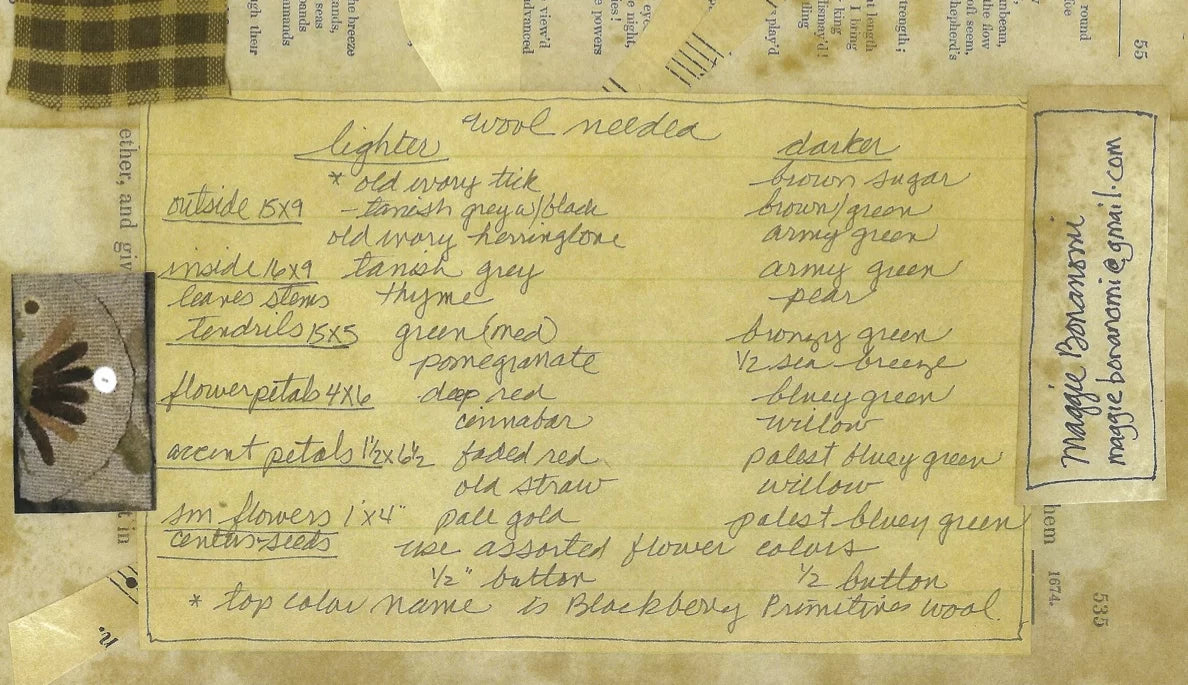 wool needed
lighter darker
* old ivory tick brown sugar
outside 15x9 - tanish grey w/black brown/green
old ivory herringbone army green
inside 16x9 tanish grey army green
leaves stems thyme pear
tendrils 15x5 green (med) bronzy green
pomegranate 1/2 sea breeze
flower petals 4x6 deep red bluey green
cinnabar willow
accent petals 1½x6½ faded red palest bluey green
old straw willow
sm flowers 1"x4" pale gold palest bluey green
centers-seeds use assorted flower colors
1/2" button 1/2 button
* top color name is Blackberry Primitives wool.
Maggie Bonanomi
maggie bonanomi@gmail.com
ether, and giv
t in
hem
1674.
535
55
he breeze
ands,
seas
pands
mmands
gh their
view'd
advanced
e night,
tes!
e powers
play'd
at length
I bring
king
dismay'd!
fling
trength;
nbeam,
the flow
oft seem,
hepherd's
round
n.